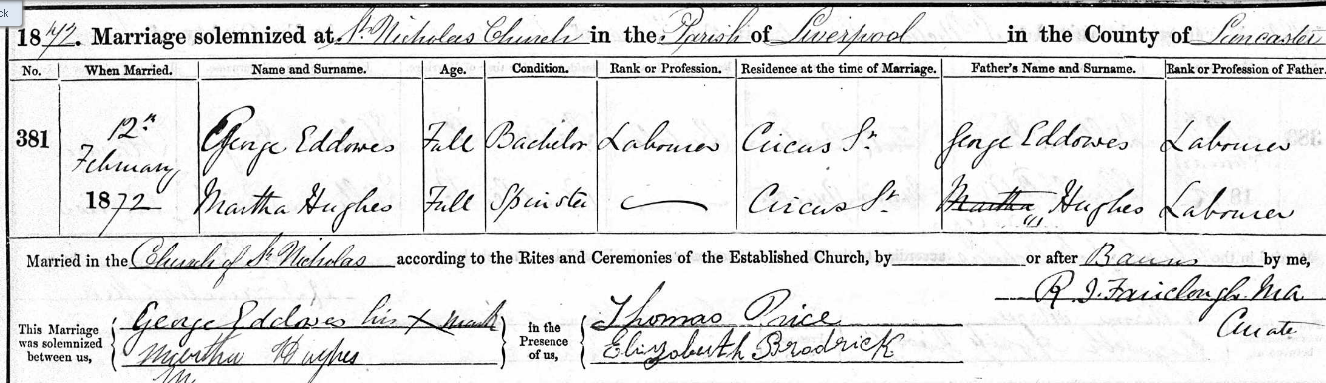 ck
1872. Marriage solemnized at St. Nicholas Church in the Parish of Liverpool in the County of Lancaster
No. When Married. Name and Surname. Age. Condition. Rank or Profession. Residence at the time of Marriage. Father's Name and Surname. Rank or Profession of Father.
381 12th February 1872
George Eddowes Full Bachelor Labourer Circus St. George Eddowes Labourer
Martha Hughes Full Spinster — Circus St. Martha Hughes Labourer
Married in the Church of St. Nicholas according to the Rites and Ceremonies of the Established Church, by or after Banns by me,
R. J. Fairclough MA
Curate
This Marriage was solemnized between us,
George Eddowes his X mark
Martha Hughes
in the Presence of us,
Thomas Price
Elizabeth Brodrick